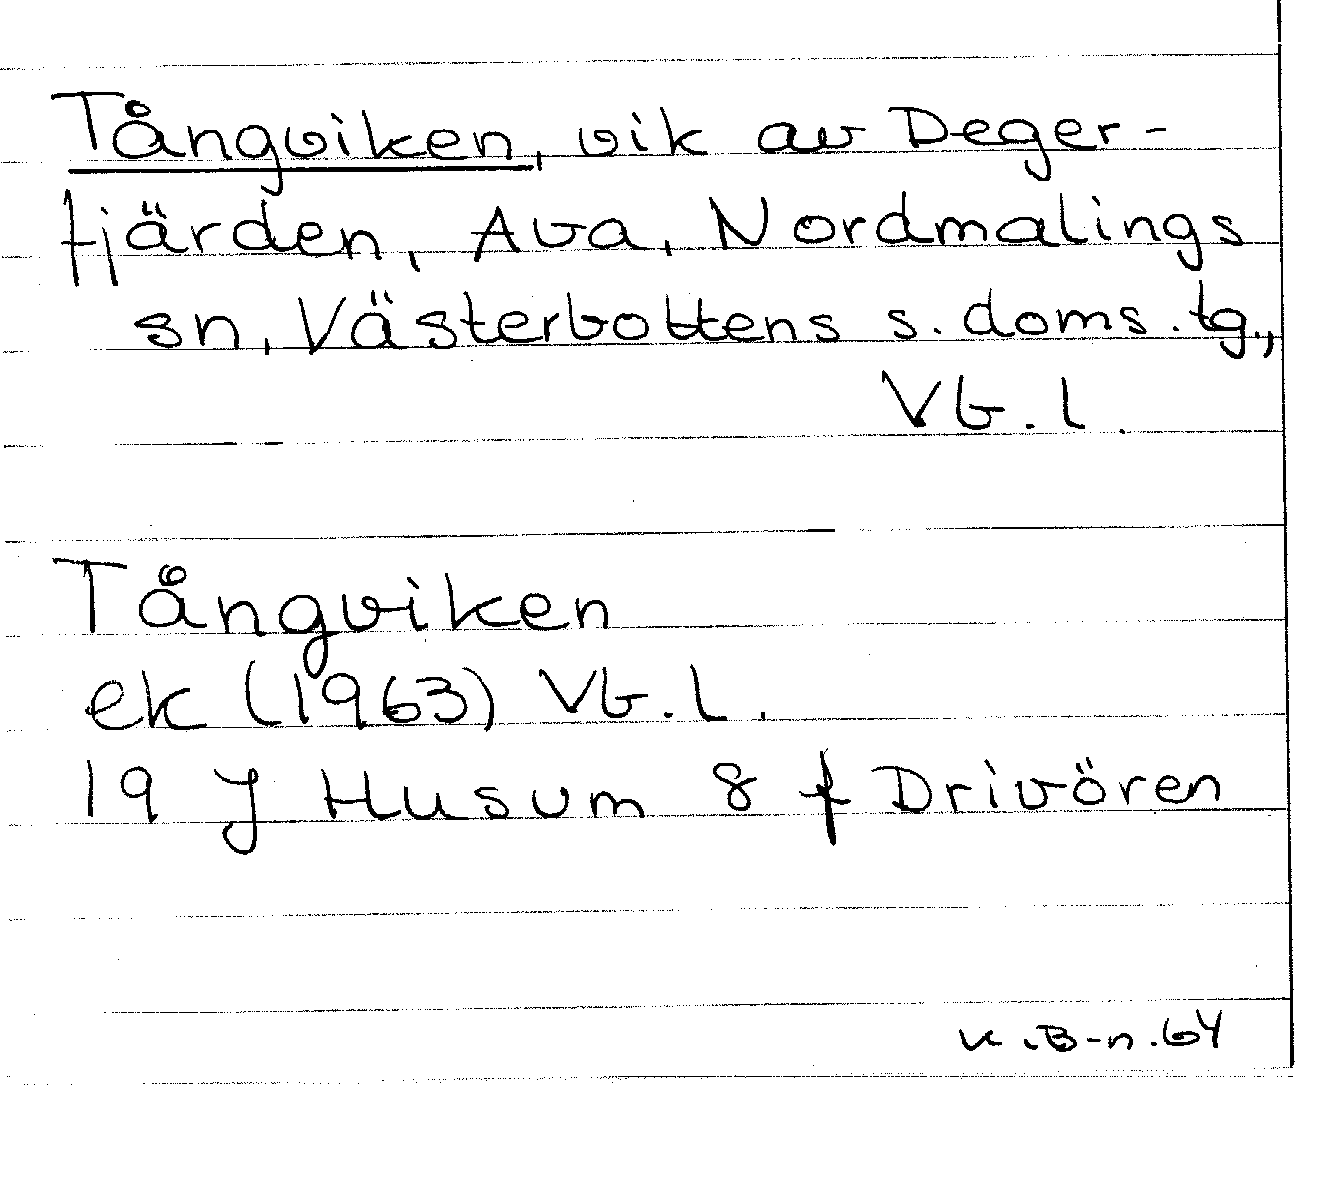 Tångviken, vik av Deger-
fjärden, Ava, Nordmalings
sn, Västerbottens s. doms. tg.,
Vb. l.
Tångviken
ek (1963) Vb. l.
19 J Husum 8 f Drivören
K.B-n.64